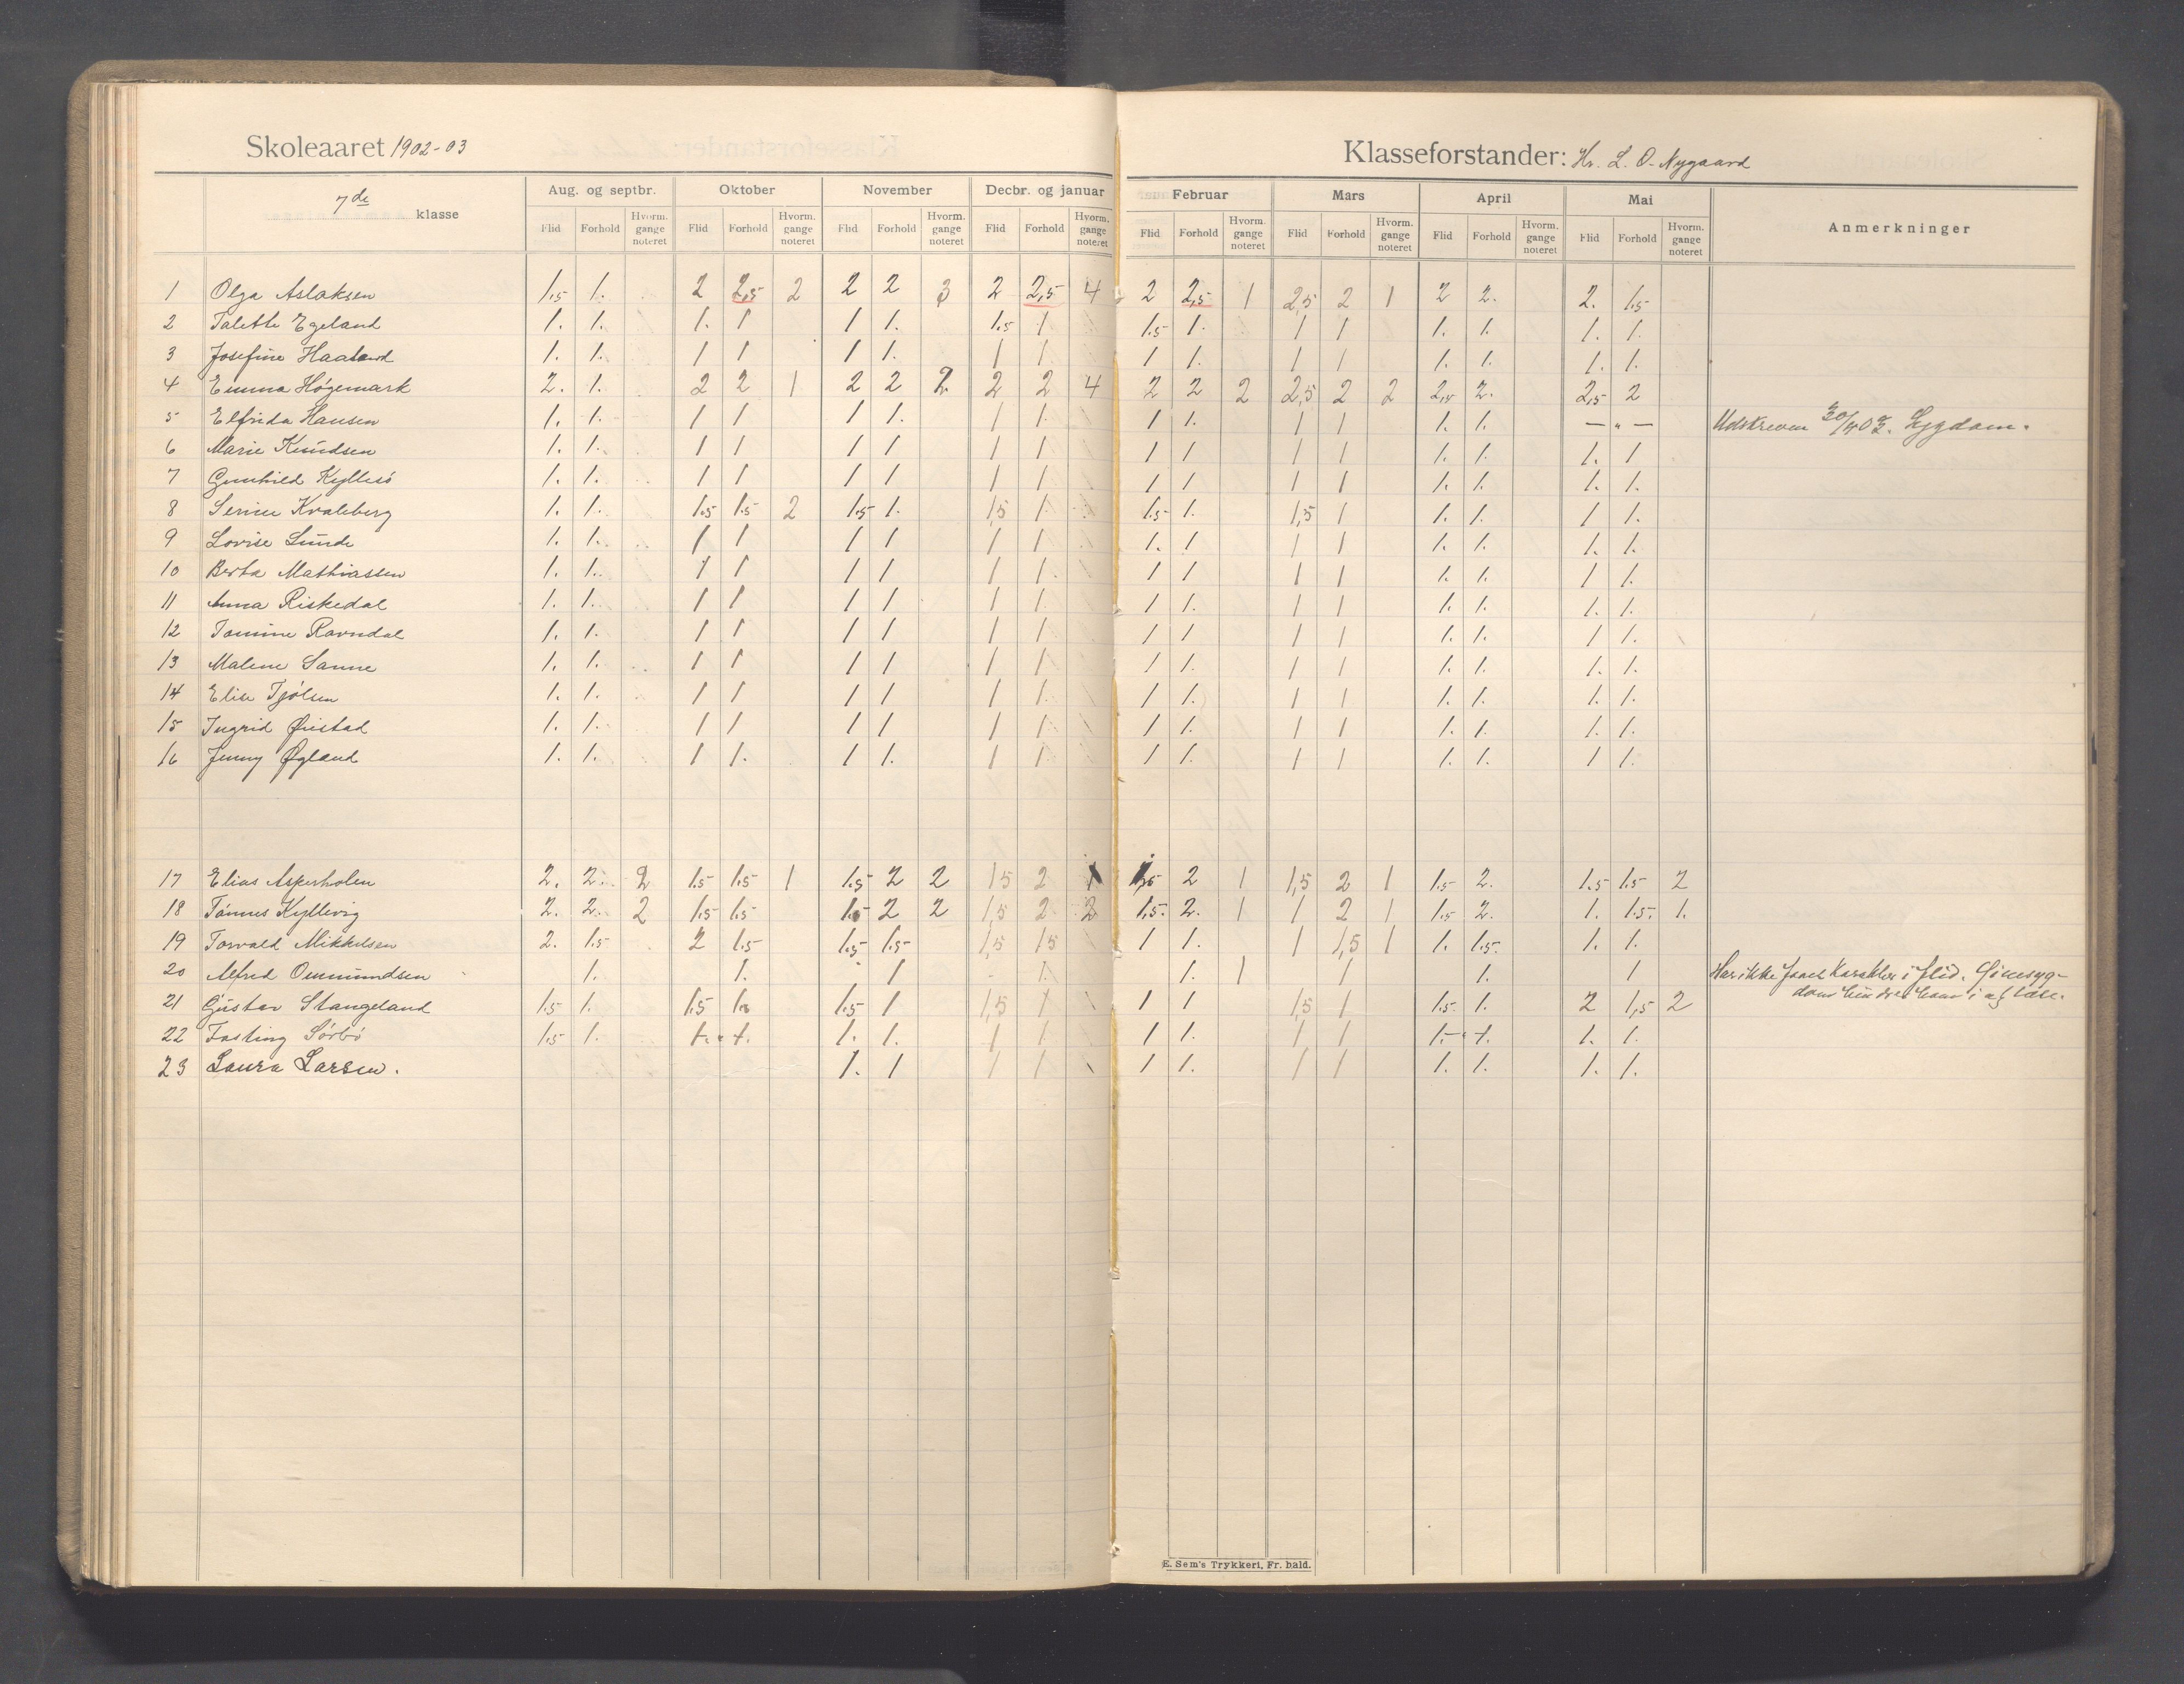 Skoleaaret 1902-03
Klasseforstander: Hr. L. O. Nygaard
7de klasse
Aug. og septbr. Oktober November Decbr. og januar Februar Mars April Mai Anmerkninger
Flid Forhold Hvorm. gange noteret Flid Forhold Hvorm. gange noteret Flid Forhold Hvorm. gange noteret Flid Forhold Hvorm. gange noteret Flid Forhold Hvorm. gange noteret Flid Forhold Hvorm. gange noteret Flid Forhold Hvorm. gange noteret Flid Forhold Hvorm. gange noteret
1 Olga Aslaksen 1.5 1. 2 2,5 2 2 2 3 2 2,5 4 2 2,5 1 2,5 2 1 2 2. 2. 1.5
2 Talette Egeland 1. 1. 1. 1 1 1. 1.5 1 1.5 1. 1 1 1. 1. 1. 1.
3 Josefine Haaland 1. 1. 1 1 1 1. 1 1 1 1 1 1 1. 1. 1. 1.
4 Emma Högemark 2. 1. 2 2 1 2 2 2 2 2 4 2 2 2 2,5 2 2 2,5 2. 2,5 2
5 Elfrida Hansen 1. 1. 1 1 1 1. 1 1. 1 1. 1 1 1. 1. — " — Udskreven 30/4 03. Sygdom.
6 Marie Knudsen 1. 1. 1 1 1 1 1 1 1 1 1 1 1. 1. 1. 1
7 Gunhild Kyllesö 1. 1. 1 1 1 1 1 1 1 1 1 1 1. 1. 1. 1.
8 Serine Kvaleberg 1. 1. 1.5 1.5 2 1.5 1. 1,5 1. 1.5 1. 1,5 1 1. 1. 1 1.
9 Lovise Lunde 1. 1. 1 1 1 1 1 1 1. 1 1 1 1. 1. 1. 1.
10 Berta Mathiassen 1. 1. 1 1 1 1 1 1. 1 1 1 1 1. 1. 1 1.
11 Anna Riskedal 1. 1. 1 1 1 1 1 1 1 1. 1 1 1. 1. 1. 1.
12 Tomine Ravndal 1. 1. 1 1 1 1 1 1 1 1 1 1 1. 1. 1 1.
13 Malene Sanne 1. 1. 1 1 1 1 1 1 1 1. 1 1 1. 1. 1. 1.
14 Elise Tjölsen 1. 1. 1 1 1 1 1 1. 1 1. 1 1 1. 1. 1. 1.
15 Ingrid Øiestad 1. 1. 1 1 1 1 1 1 1 1. 1 1 1. 1. 1. 1.
16 Jenny Øgland 1. 1. 1 1. 1 1. 1 1 1 1. 1 1 1. 1. 1 1.
17 Elias Asperholen 2. 2. 2 1.5 1.5 1 1.5 2 2 1 5 2 1 1,5 2 1 1,5 2 1 1.5 2. 1.5 1.5 2
18 Tönnes Kyllevig 2. 2. 2 1.5 1.5 1.5 2 2 1,5 2 2 1,5. 2. 1 1 2 1 1.5 2. 1. 1.5. 1.
19 Torvald Mikkelsen 2. 1.5 2 1.5 1.5 1.5 1,5 1 5 1 1. 1 1,5 1 1. 1.5. 1. 1.
20 Alfred Ommundsen 1. 1. 1 1. 1. 1 1 1. 1 Har ikke faaet Karakter i flid. Öinesyg-
dom hindret ham i at læse.
21 Gustav Stangeland 1.5 1. 1.5 1. 1.5 1 1,5 1 1 1 1,5 1 1.5 1. 2 1,5 2
22 Fasting Sörbö 1.5 1. 1. " 1. 1. 1. 1 1 1 1. 1 1 1. " 1. 1. 1.
23 Laura Larsen. 1. 1 1 1 1 1. 1 1 1. 1. 1. 1.
E. Sem's Trykkeri, Fr. hald.